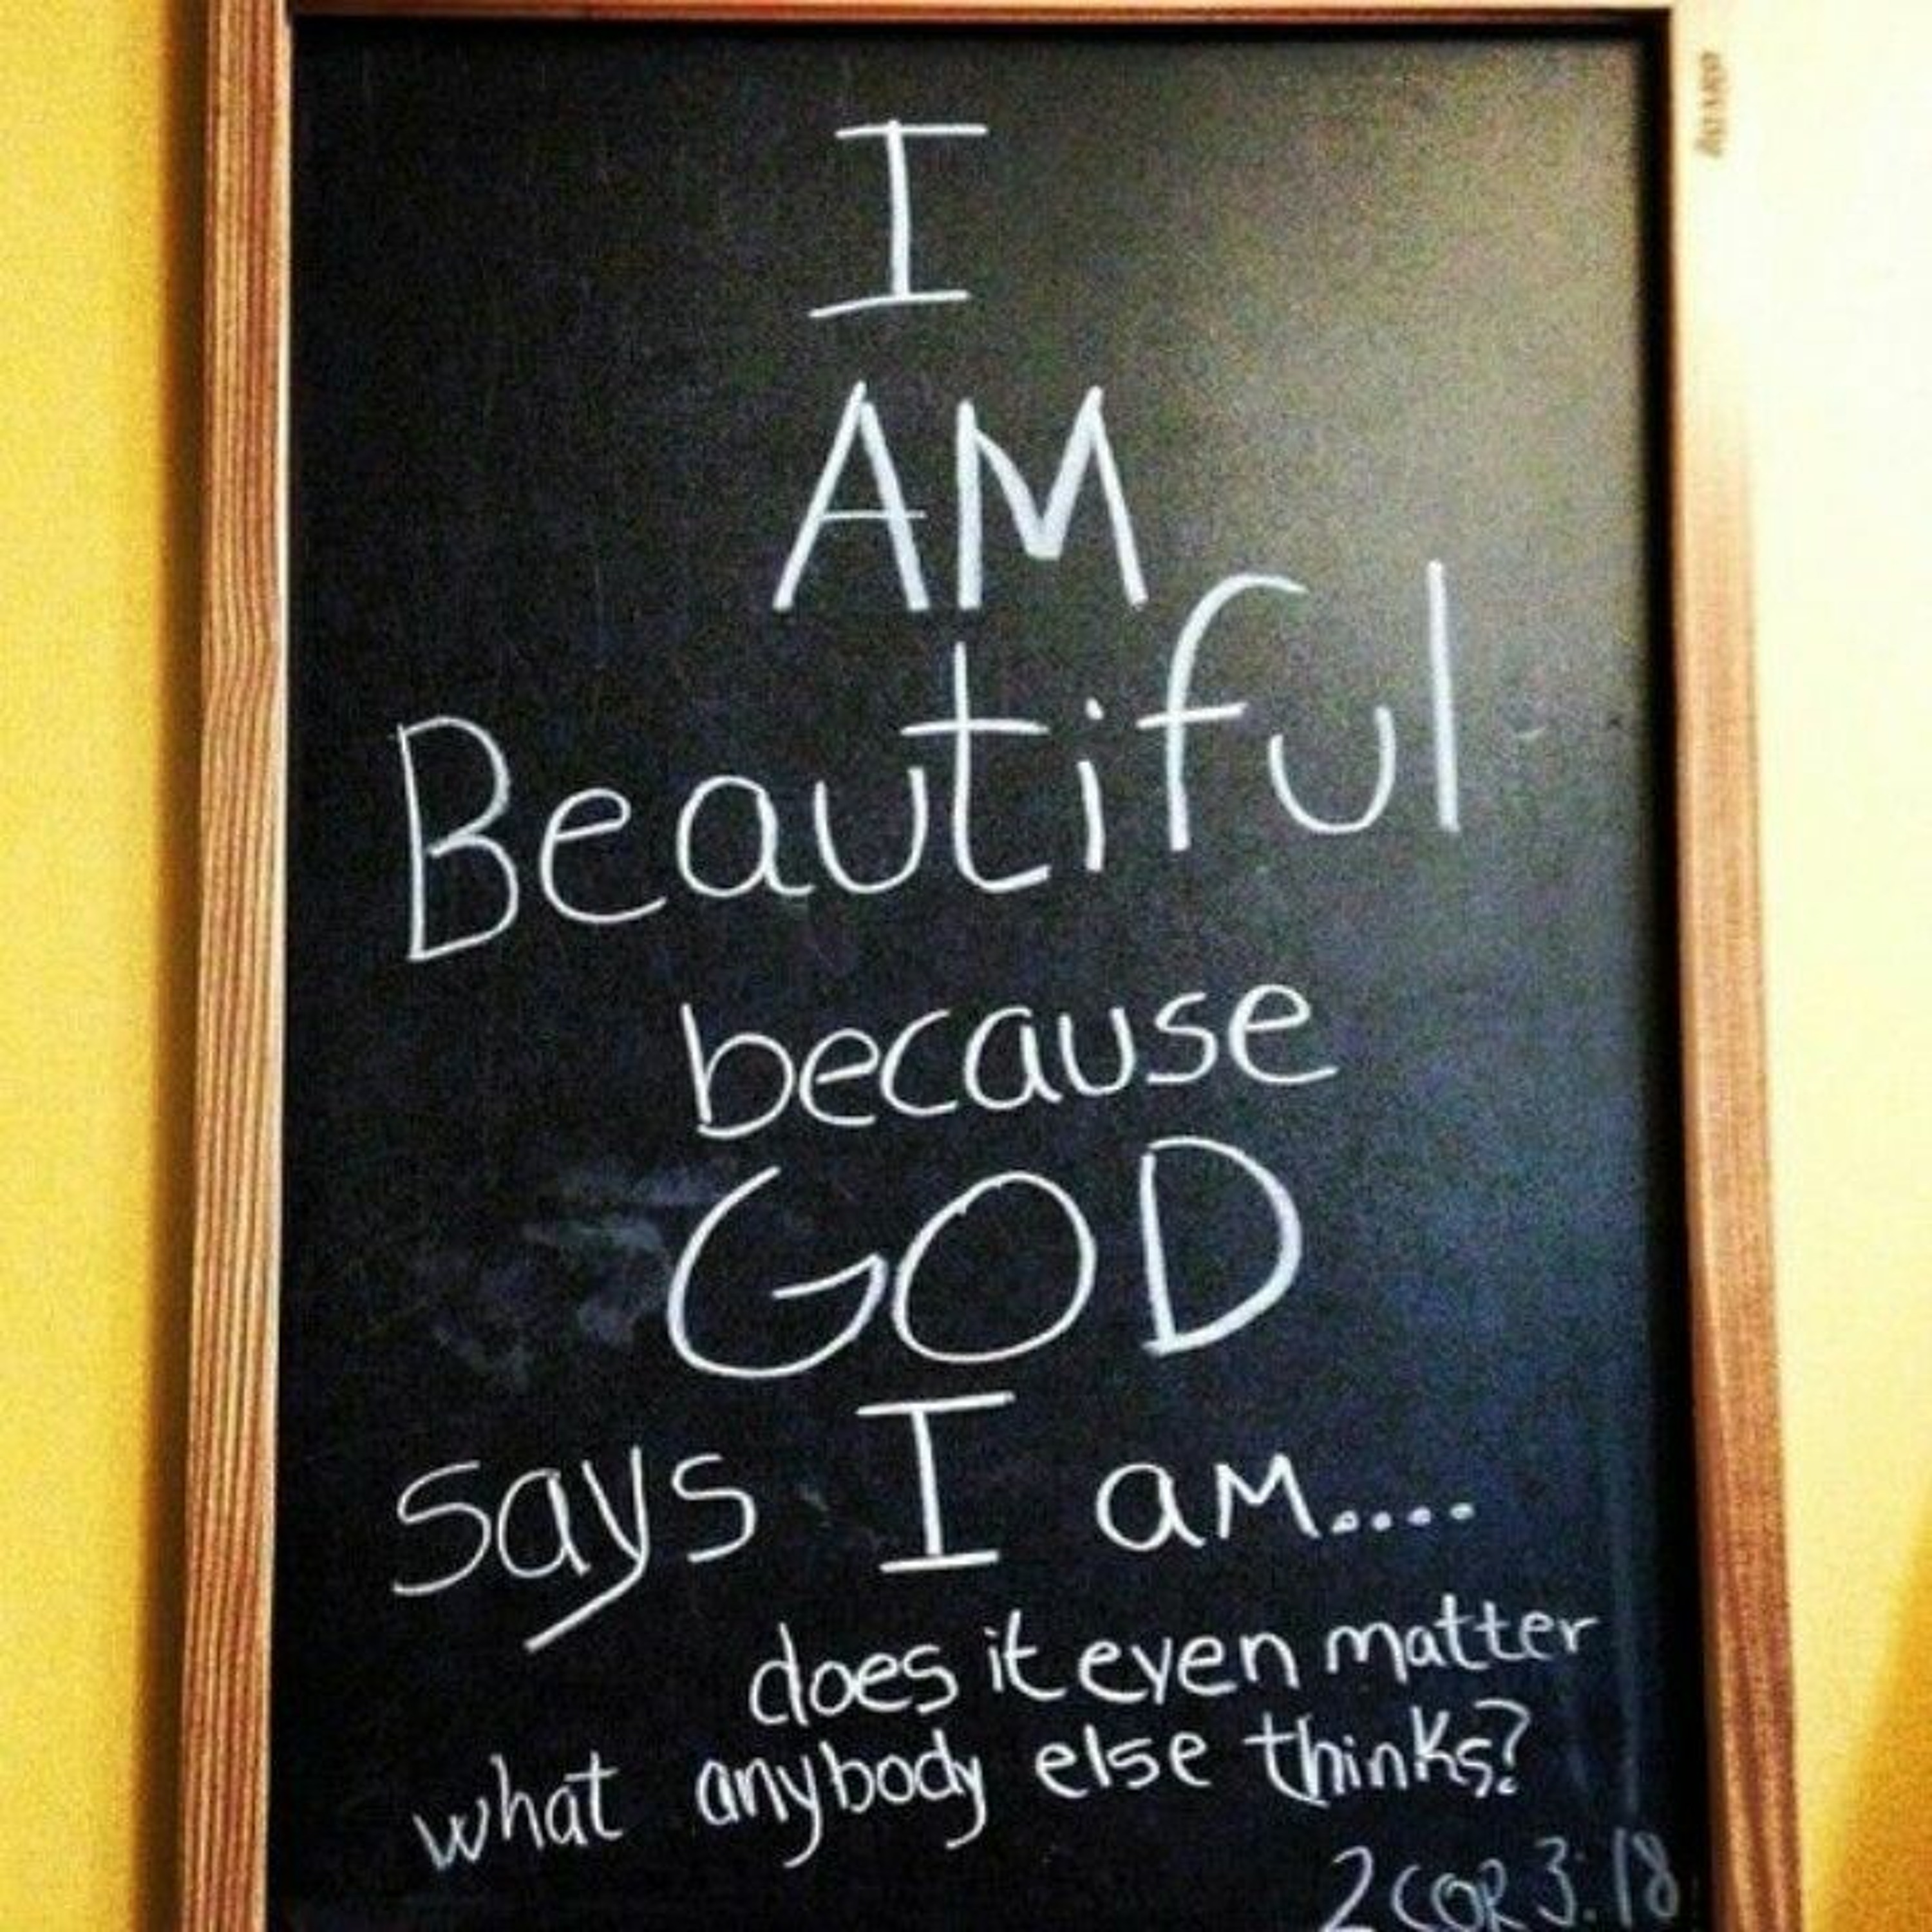 I
AM
Beautiful
because
GOD
says I am....
does it even matter
what anybody else thinks?
2 COR 3:18